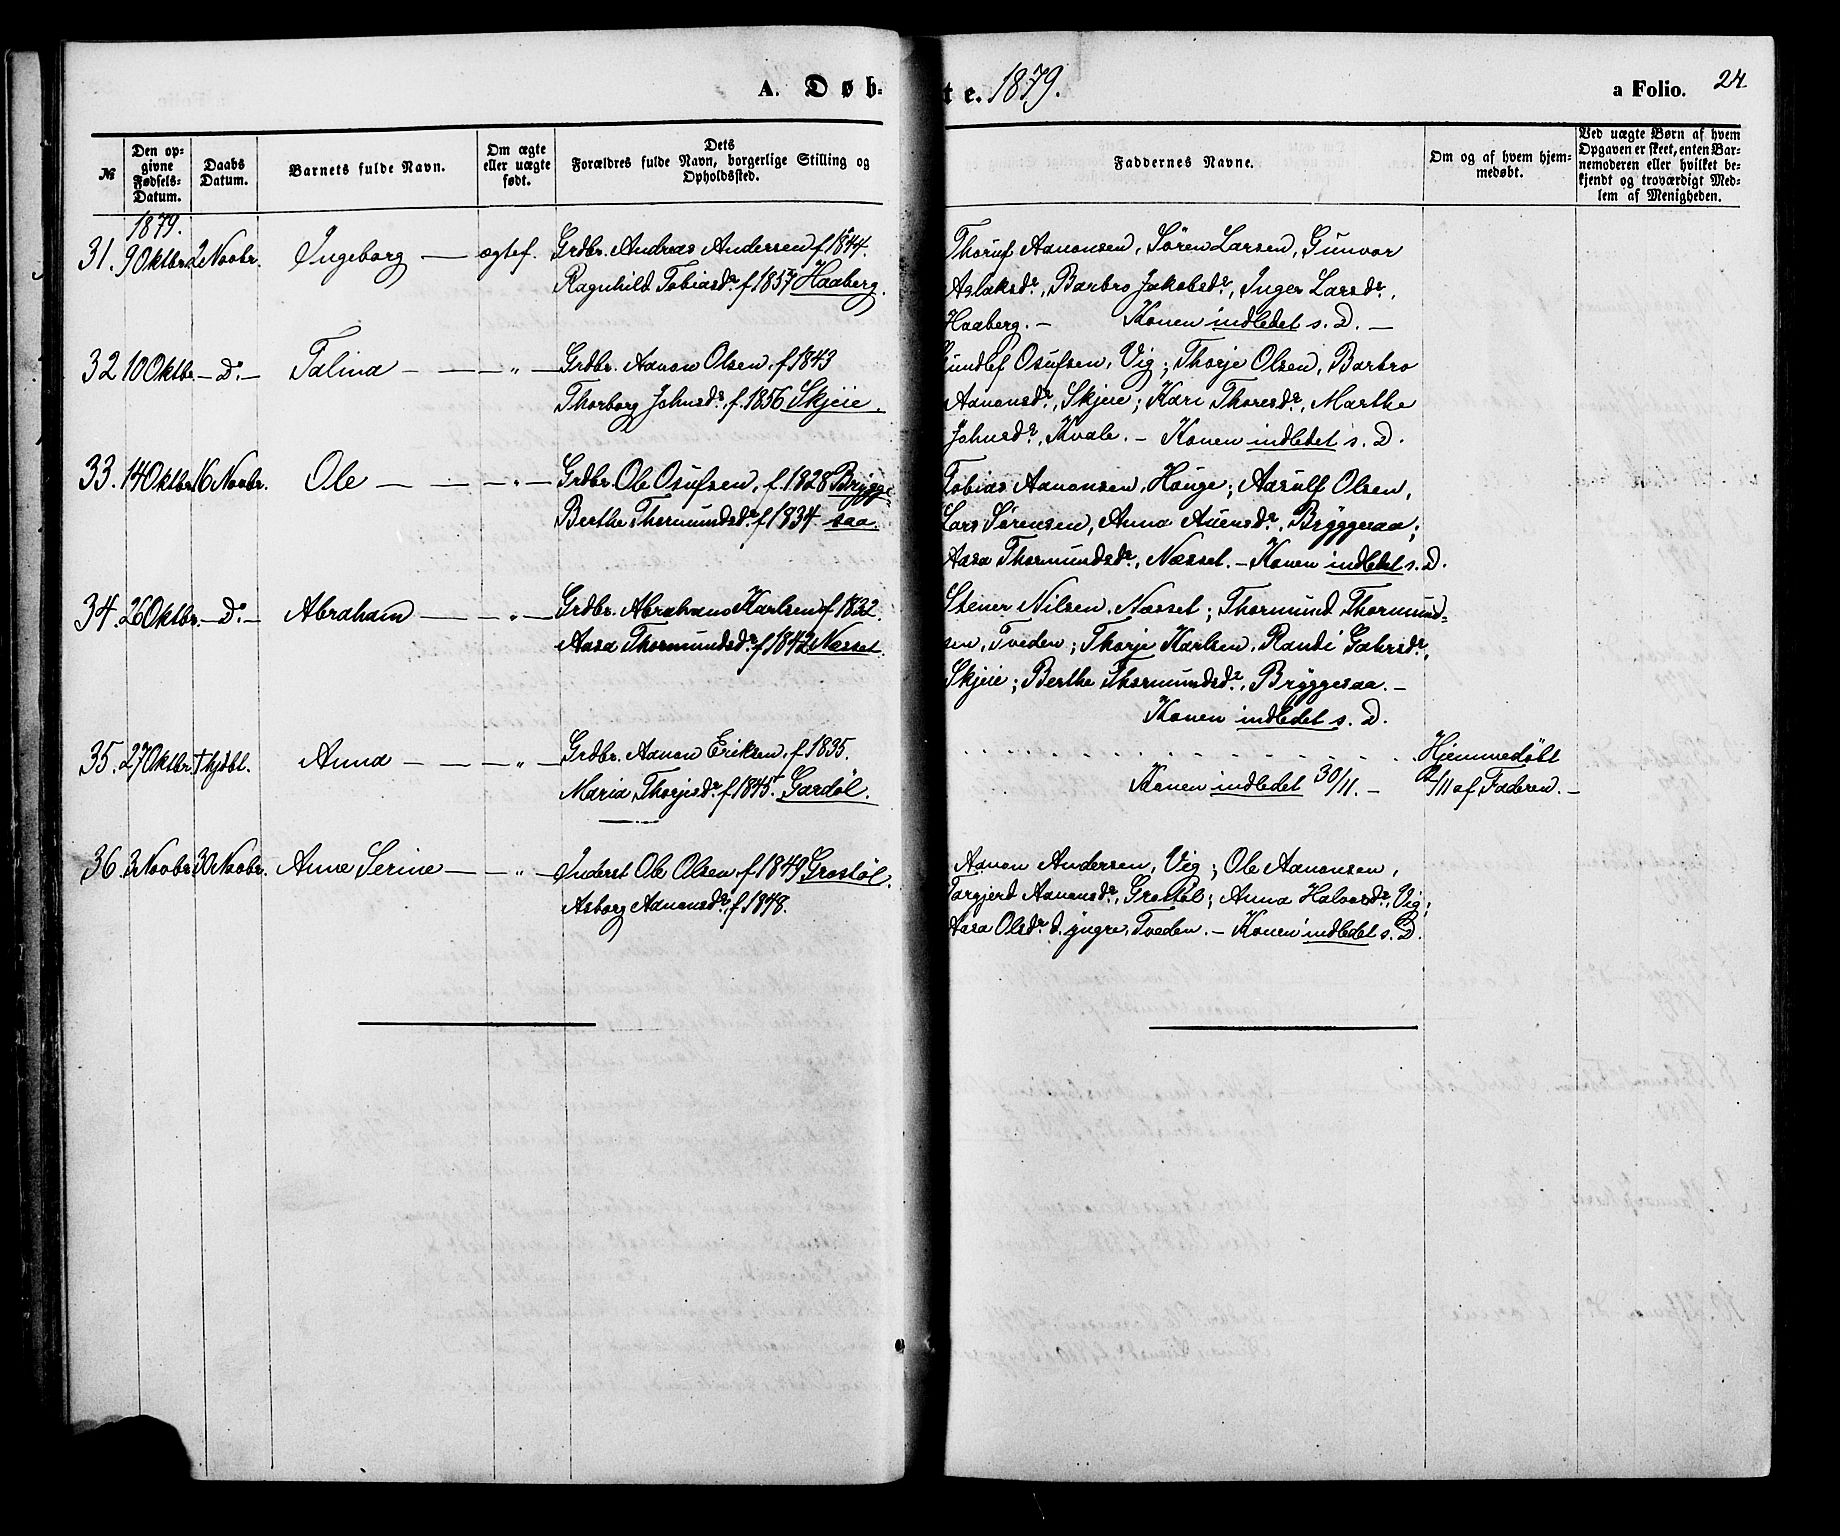 A. Døbte. 1879. a Folio. 24
№
Den opgivne Fødsels-Datum.
Daabs Datum.
Barnets fulde Navn.
Om ægte eller uægte født.
Dets Forældres fulde Navn, borgerlige Stilling og Opholdssted.
Faddernes Navne.
Om og af hvem hjemmedøbt.
Ved uægte Børn af hvem Opgaven er skeet, enten Barnemoderen eller hvilket bekjendt og troværdigt Medlem af Menigheden.
1879.
31. 9 Oktbr. 2 Novbr. Ingeborg — ægtef. Grdbr. Andreas Andersen f. 1844.
Ragnhild Tobiasdr. f. 1857 Haaberg.
Thoruf Aanonsen, Sören Larsen, Gunvor
Aslaksdr., Barbro Jakobsdr., Inger Larsdr.,
Haaberg. — Konen indledet s. D. —
32 10 Oktbr. — Do. — Talina — — „ — Grdbr. Aanon Olsen, f. 1843
Thorborg Johnsdr., f. 1856 Skjeie.
Gundlef Osufsen, Vig; Thorje Olsen, Barbro
Aanonsdr., Skjeie; Kari Thoresdr., Marthe
Johnsdr., Kvale. — Konen indledet s. D.
33. 14 Oktbr. 16 Novbr. Ole — — „ — Grdbr. Ole Osufsen, f. 1828 Brygge-
Berthe Thormundsdr. f. 1834. saa.
Tobias Aanonsen, Houge; Aasulf Olsen,
Lars Sørensen, Anna Auensdr., Bryggesaa;
Aasa Thormundsdr., Næsset. — Konen indledet s. D.
34. 26 Oktbr. — Do. — Abraham — — „ — Grdbr. Abraham Karlsen f. 1832.
Aasa Thormundsdr. f. 1842 Næsset.
Stener Nilsen, Næsset; Thormund Thormund-
sen, Tveden; Thorje Karlsen, Randi Gahrsdr.,
Skjeie; Berthe Thormundsdr., Bryggesaa. —
Konen indledet s. D.
35. 27 Oktbr. † hjdbt. Anna — — „ — Grdbr. Aanon Eriksen, f. 1835.
Maria Thorjesdr. f. 1845. Gardöl.
Konen indledet 30/11. —
Hjemmedøbt
2/11 af Faderen. —
36. 3 Novbr. 30 Novbr. Anne Serine — — „ — Inderst Ole Olsen f. 1849 Grostöl.
Asborg Aanonsdr. f. 1848.
Aanon Andersen, Vig; Ole Aanonsen,
Torgjerd Aanonsdr., Grostöl; Anna Halvorsdr., Vig;
Aasa Olsdr. d. yngre, Tveden. — Konen indledet s. D.